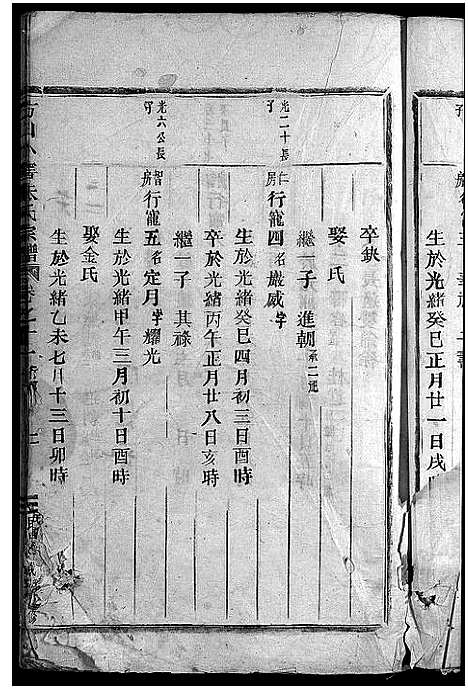 生於光緒癸巳正月廿一日戌時
卒缺
娶 氏
繼一子 進朝 承二祧
光二十長子
仁房行寵四 名嚴威 字
生於光緒癸巳四月初三日酉時
卒於光緒丙午正月廿八日亥時
繼一子 其祿
光六公長子
智房行寵五 名定月 字耀光
生於光緒甲午三月初十日酉時
娶金氏
生於光緒乙未七月十三日卯時
朱氏宗譜